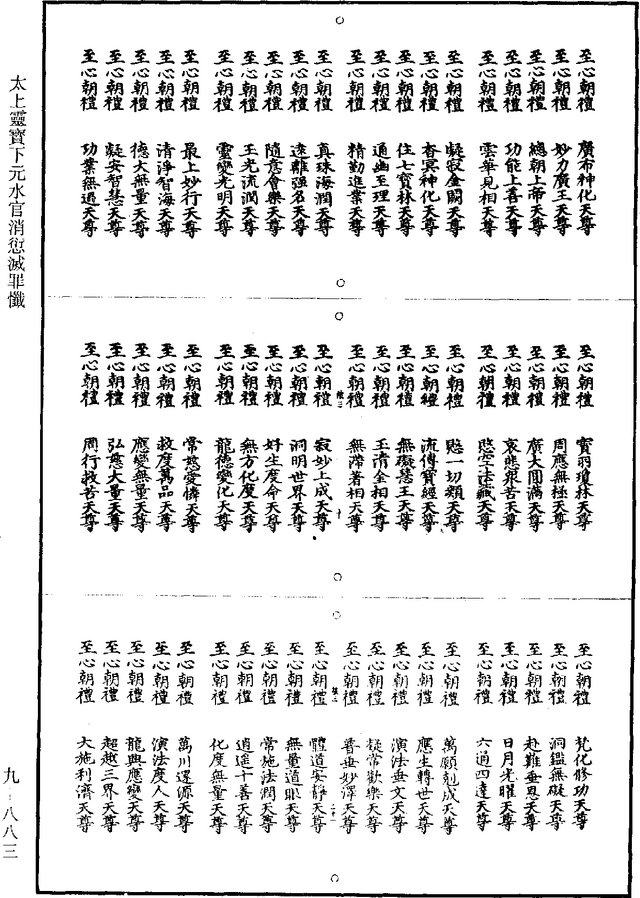 太上靈寶下元水官消愆滅罪懺
至心朝禮 廣布神化天尊
至心朝禮 妙力廣王天尊
至心朝禮 總朝上帝天尊
至心朝禮 功能上善天尊
至心朝禮 雲華見相天尊
至心朝禮 凝寂金闕天尊
至心朝禮 杳冥神化天尊
至心朝禮 住七寶林天尊
至心朝禮 通幽至理天尊
至心朝禮 精勤進業天尊
至心朝禮 真珠海潤天尊
至心朝禮 遠離強名天尊
至心朝禮 隨意會樂天尊
至心朝禮 玉光流潤天尊
至心朝禮 靈變光明天尊
至心朝禮 最上妙行天尊
至心朝禮 清淨智海天尊
至心朝禮 德大無量天尊
至心朝禮 凝安智慧天尊
至心朝禮 功業無過天尊
至心朝禮 寶羽瓊林天尊
至心朝禮 周應無極天尊
至心朝禮 廣大圓滿天尊
至心朝禮 哀悲眾苦天尊
至心朝禮 愍空法藏天尊
至心朝禮 愍一切類天尊
至心朝禮 流傳寶經天尊
至心朝禮 無礙慧王天尊
至心朝禮 玉清金相天尊
至心朝禮 無滯著相天尊
至心朝禮 寂妙上成天尊
至心朝禮 洞明世界天尊
至心朝禮 好生度命天尊
至心朝禮 無方化度天尊
至心朝禮 龍德變化天尊
至心朝禮 常慈愛憐天尊
至心朝禮 救度萬品天尊
至心朝禮 應變無量天尊
至心朝禮 弘慈大量天尊
至心朝禮 周行救苦天尊
至心朝禮 梵化修功天尊
至心朝禮 洞鑑無礙天尊
至心朝禮 赴難垂恩天尊
至心朝禮 日月光曜天尊
至心朝禮 六通四達天尊
至心朝禮 萬願剋成天尊
至心朝禮 應生轉世天尊
至心朝禮 演法垂文天尊
至心朝禮 凝常歡樂天尊
至心朝禮 普垂妙澤天尊
至心朝禮 體道安靜天尊
至心朝禮 無量道眼天尊
至心朝禮 常施法潤天尊
至心朝禮 逍遙十善天尊
至心朝禮 化度無量天尊
至心朝禮 萬川還源天尊
至心朝禮 演法度人天尊
至心朝禮 龍興應變天尊
至心朝禮 超越三界天尊
至心朝禮 大施利濟天尊
九-八八三